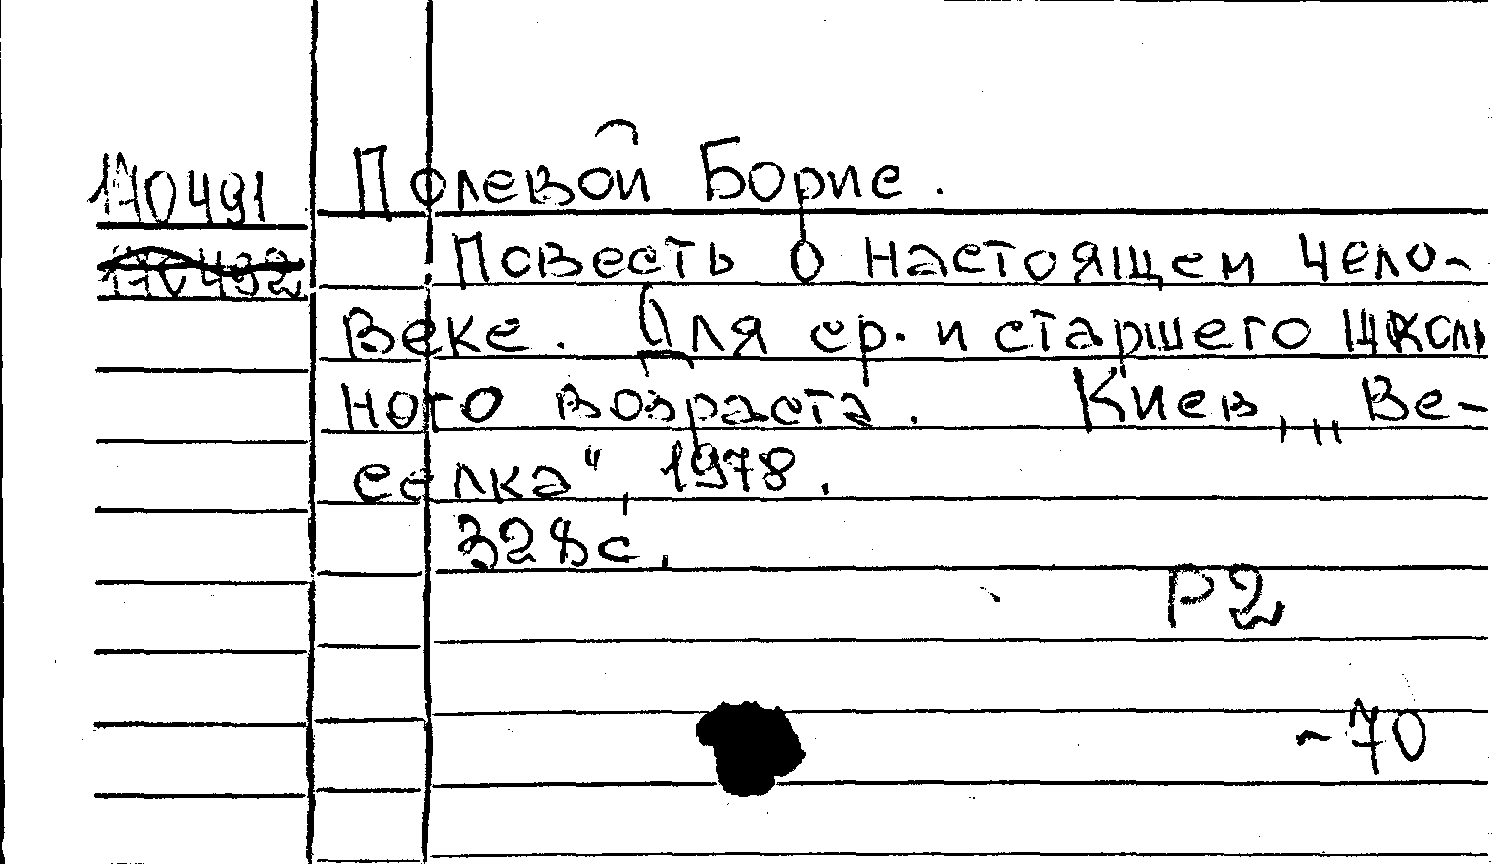 110491 Полевой Борис.
110492 Повесть о настоящем чело-
веке. Для ср. и старшего школь
ного возраста. Киев, „Ве-
селка", 1978.
328с.
Р2
-70